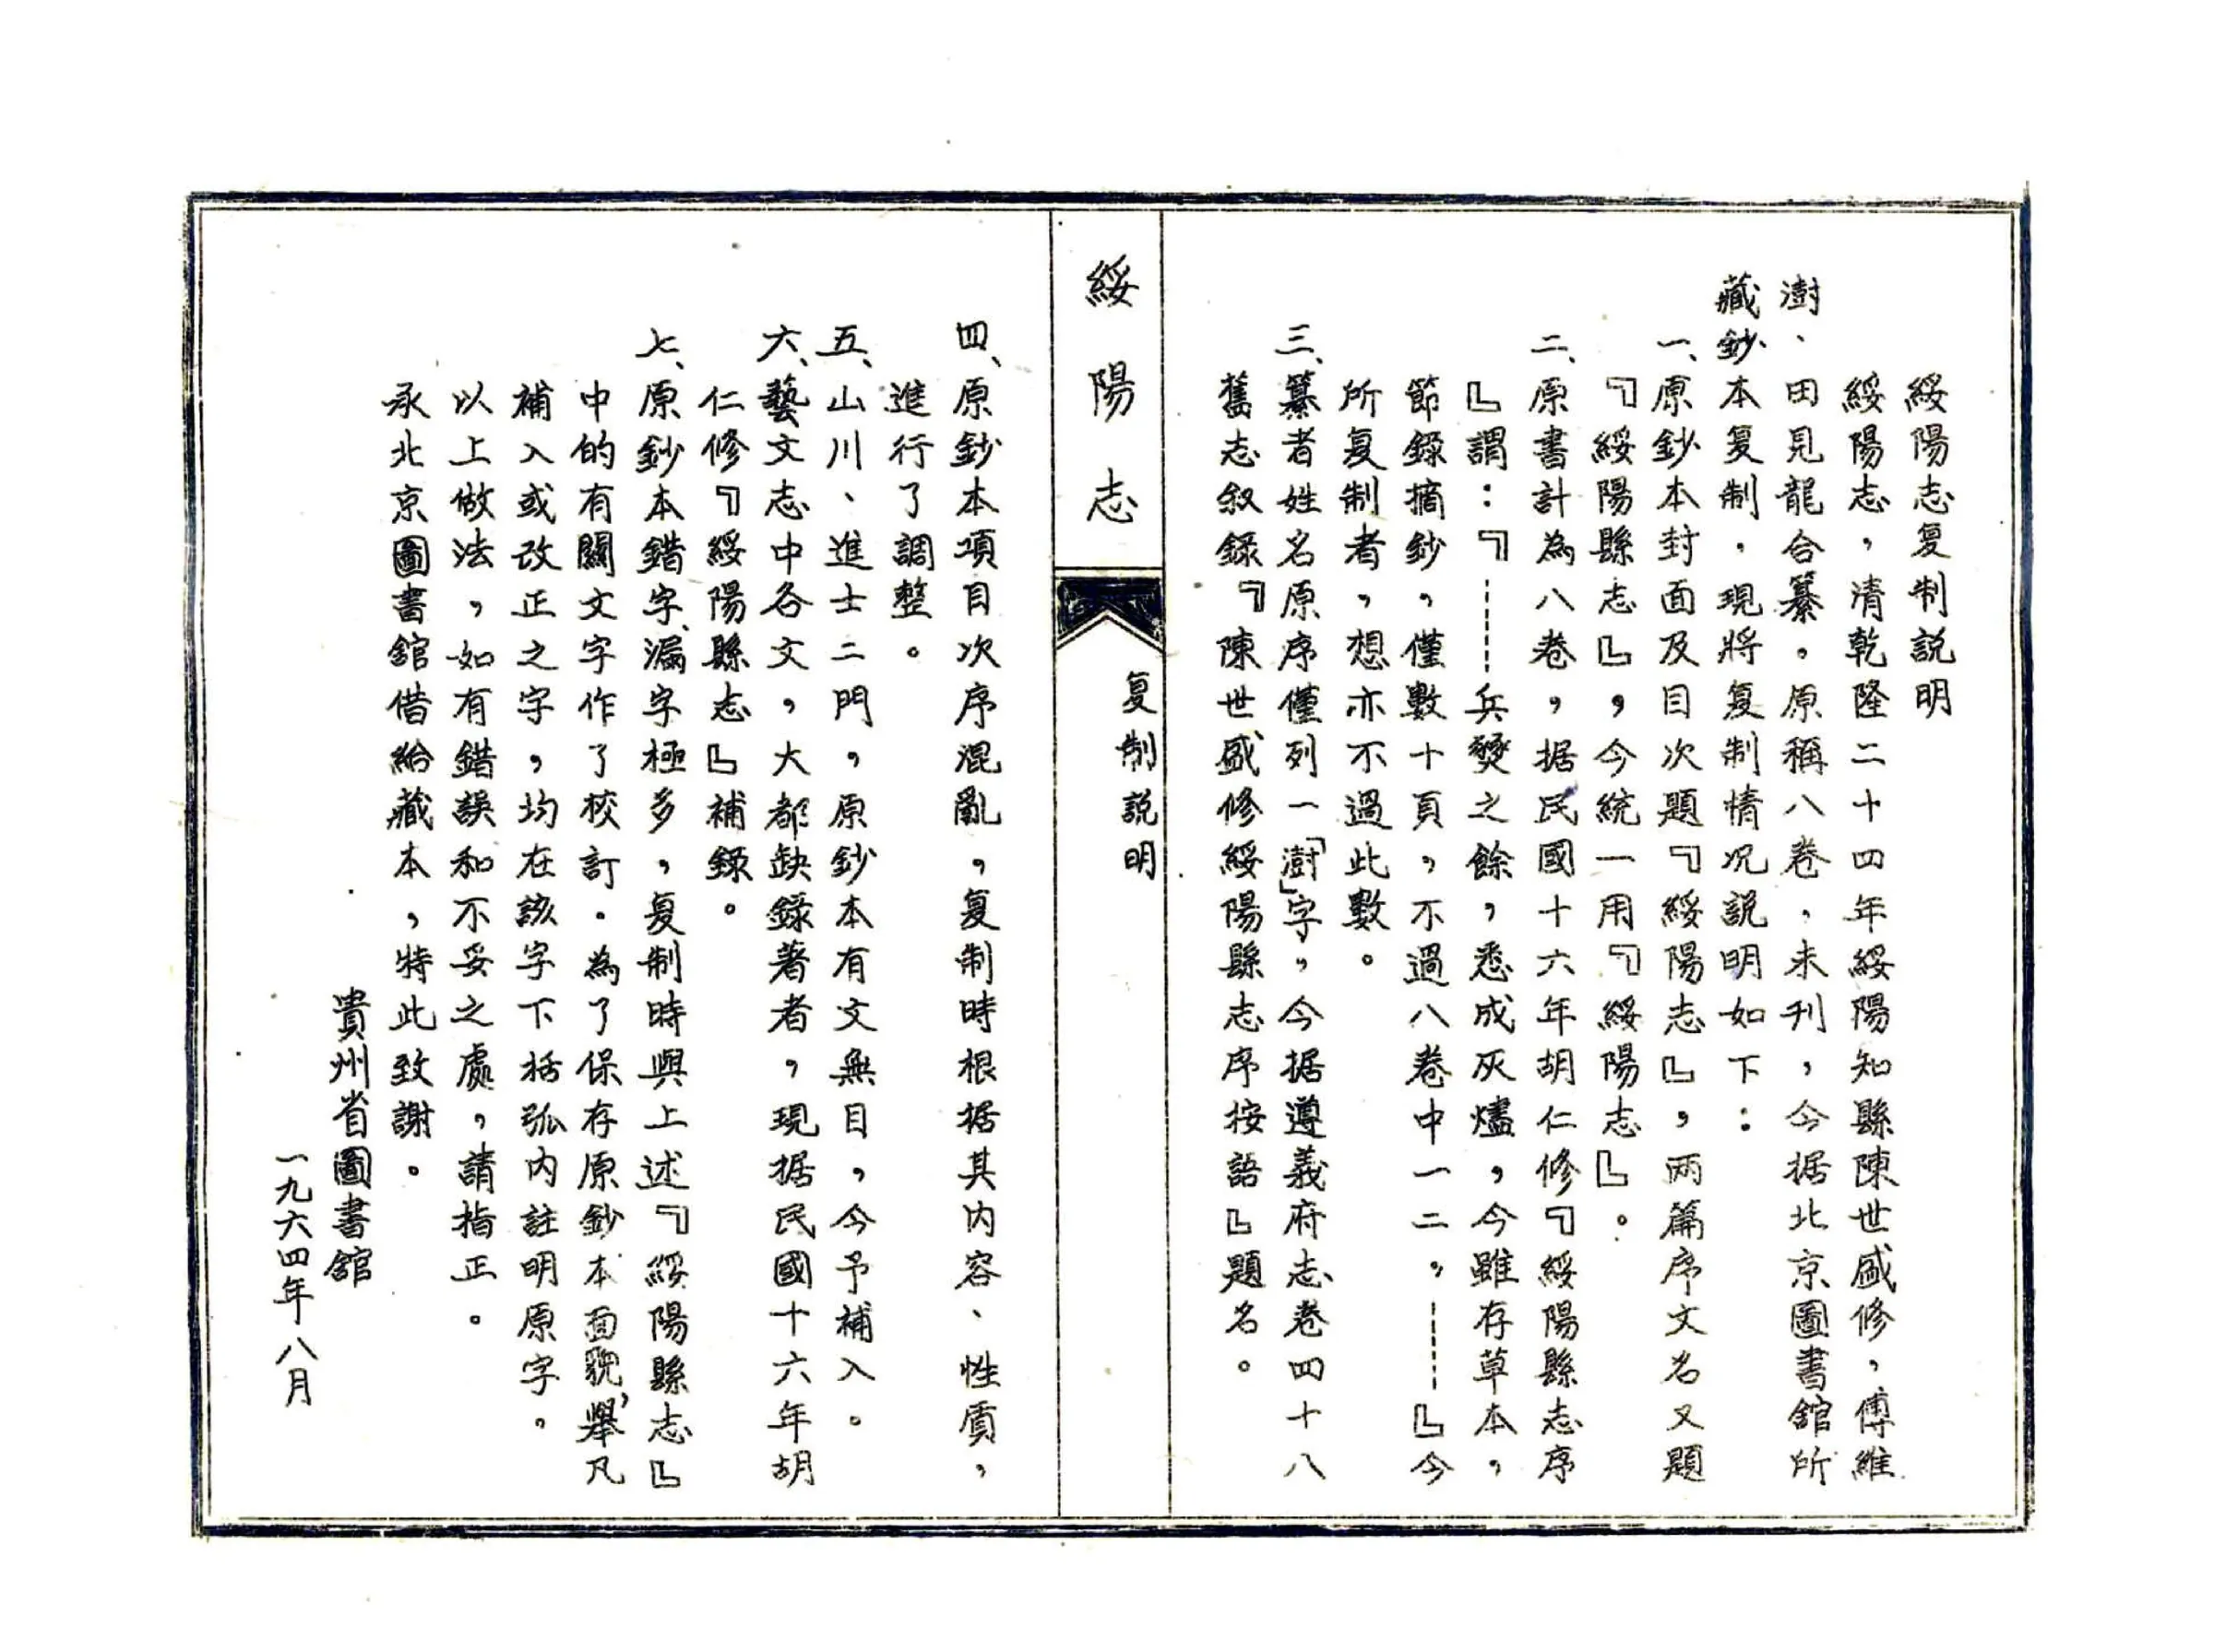 綏陽志复制説明
綏陽志，清乾隆二十四年綏陽知縣陳世盛修，傅維
澍、田見龍合纂。原稱八卷，未刊，今据北京圖書舘所
藏鈔本复制，現將复制情况説明如下：
一、原鈔本封面及目次題『綏陽志』，两篇序文名又題
『綏陽縣志』，今統一用『綏陽志』。
二、原書計為八卷，据民國十六年胡仁修『綏陽縣志序
』謂：『------兵燹之餘，悉成灰燼，今雖存草本，
節錄摘鈔，僅數十頁，不過八卷中一二。------』今
所复制者，想亦不過此數。
三、纂者姓名原序僅列一「澍」字，今据遵義府志卷四十八
舊志叙錄『陳世盛修綏陽縣志序按語』題名。
綏陽志
复制説明
四、原鈔本項目次序混亂，复制時根据其内容、性質，
進行了調整。
五、山川、進士二門，原鈔本有文無目，今予補入。
六、藝文志中各文，大都缺錄著者，現据民國十六年胡
仁修『綏陽縣志』補錄。
七、原鈔本錯字、漏字極多，复制時與上述『綏陽縣志』
中的有關文字作了校訂。為了保存原鈔本面貌，舉凡
補入或改正之字，均在該字下括弧内註明原字。
以上做法，如有錯誤和不妥之處，請指正。
承北京圖書舘借給藏本，特此致謝。
貴州省圖書舘
一九六四年八月